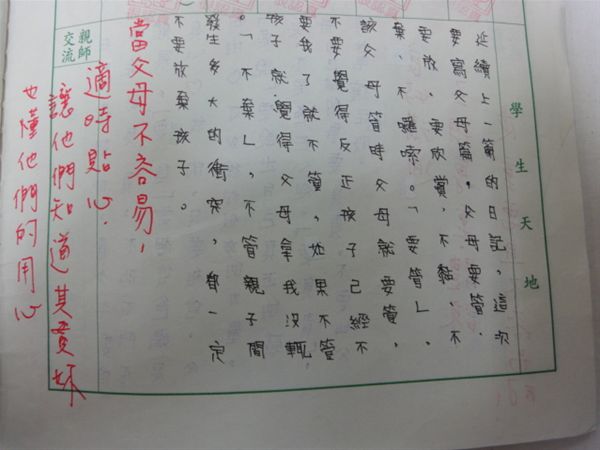 學生天地
延續上一篇的日記，這次
要寫父母篇。父母要管、
要放、要欣賞、不黏、不
棄、不囉嗦。「要管」，
該父母管時父母就要管，
不要覺得反正孩子已經不
要我了就不管，如果不管
孩子就覺得父母拿我沒輒
。「不棄」，不管親子間
發生多大的衝突，都一定
不要放棄孩子。
當父母不容易，
親師
交流
適時貼心.
讓他們知道其實妳
也懂他們的用心